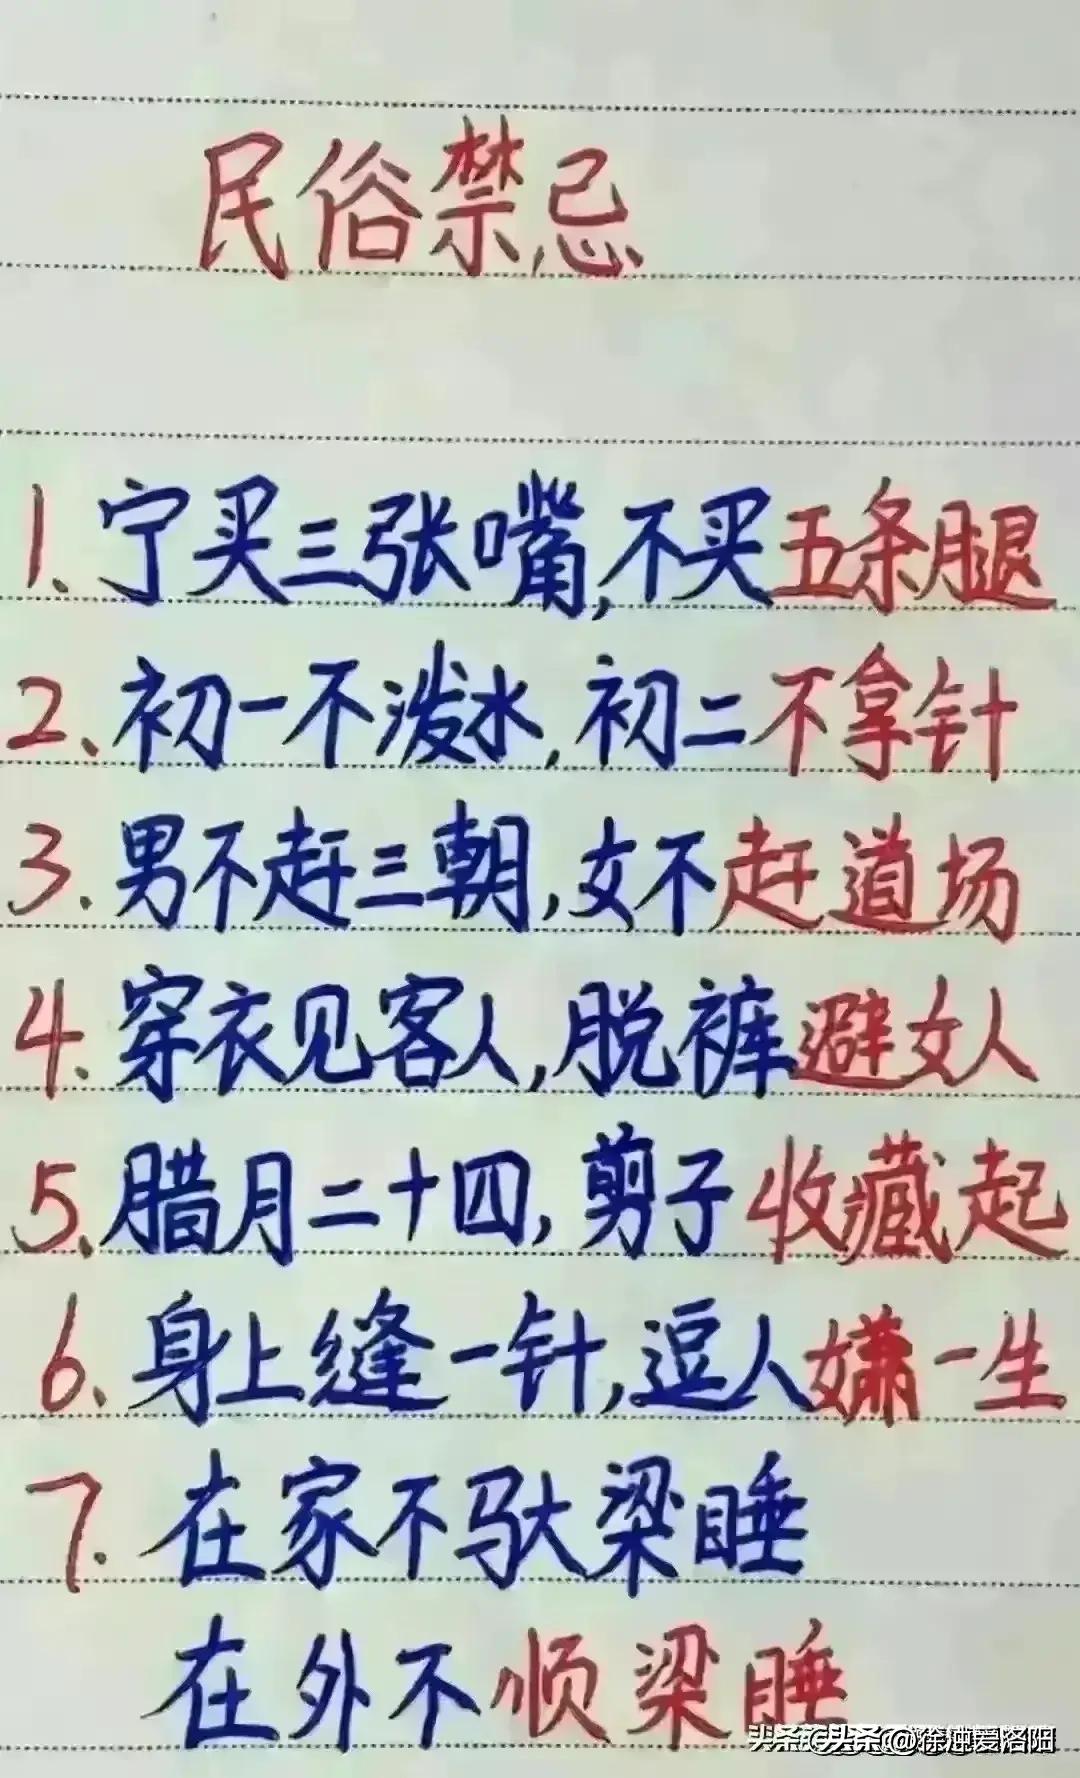 民俗禁忌
1、宁买三张嘴,不买五条腿
2、初一不泼水,初二不拿针
3.男不赶三朝,女不赶道场
4.穿衣见客人,脱裤避女人
5、腊月二十四,剪子收藏起
6.身上缝一针,逗人嫌一生
7.在家不驮梁睡
在外不顺梁睡